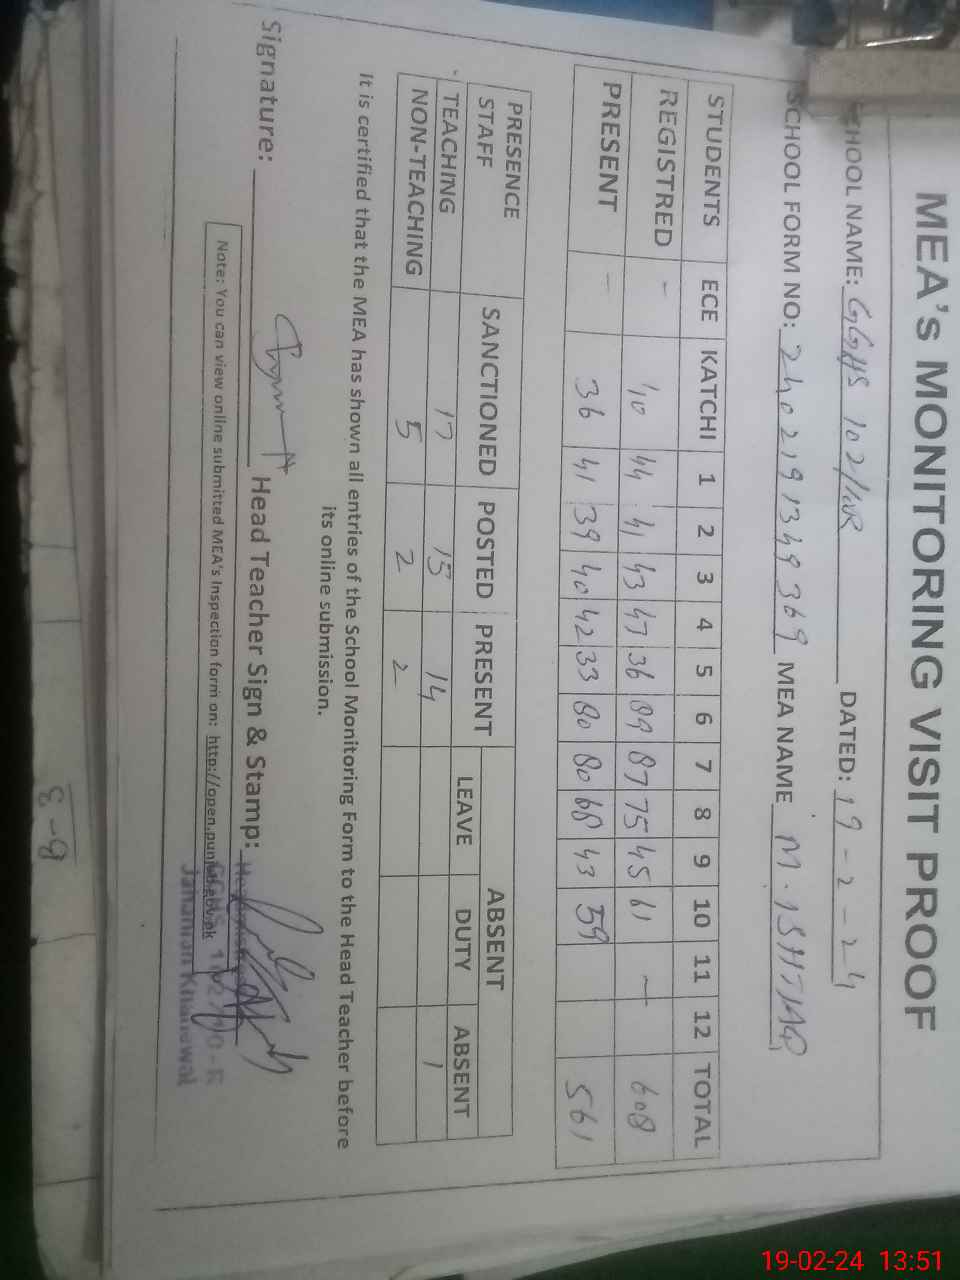 MEA's MONITORING VISIT PROOF
HOOL NAME: GGHS 102/10R DATED: 19-2-24
SCHOOL FORM NO: 2402191349369 MEA NAME M. ISHTIAQ
STUDENTS ECE KATCHI 1 2 3 4 5 6 7 8 9 10 11 12 TOTAL
REGISTRED - 40 44 41 43 47 36 89 87 75 45 61 - 608
PRESENT - 36 41 39 40 42 33 80 80 68 43 59 561
PRESENCE STAFF SANCTIONED POSTED PRESENT ABSENT
LEAVE DUTY ABSENT
TEACHING 17 15 14 1
NON-TEACHING 5 2 2
It is certified that the MEA has shown all entries of the School Monitoring Form to the Head Teacher before
its online submission.
Signature: Head Teacher Sign & Stamp:
Note: You can view online submitted MEA's Inspection form on: http://open.punjab.gov.pk
GGHS 102/10-R
Jahanian Khanewal
8-3
19-02-24 13:51